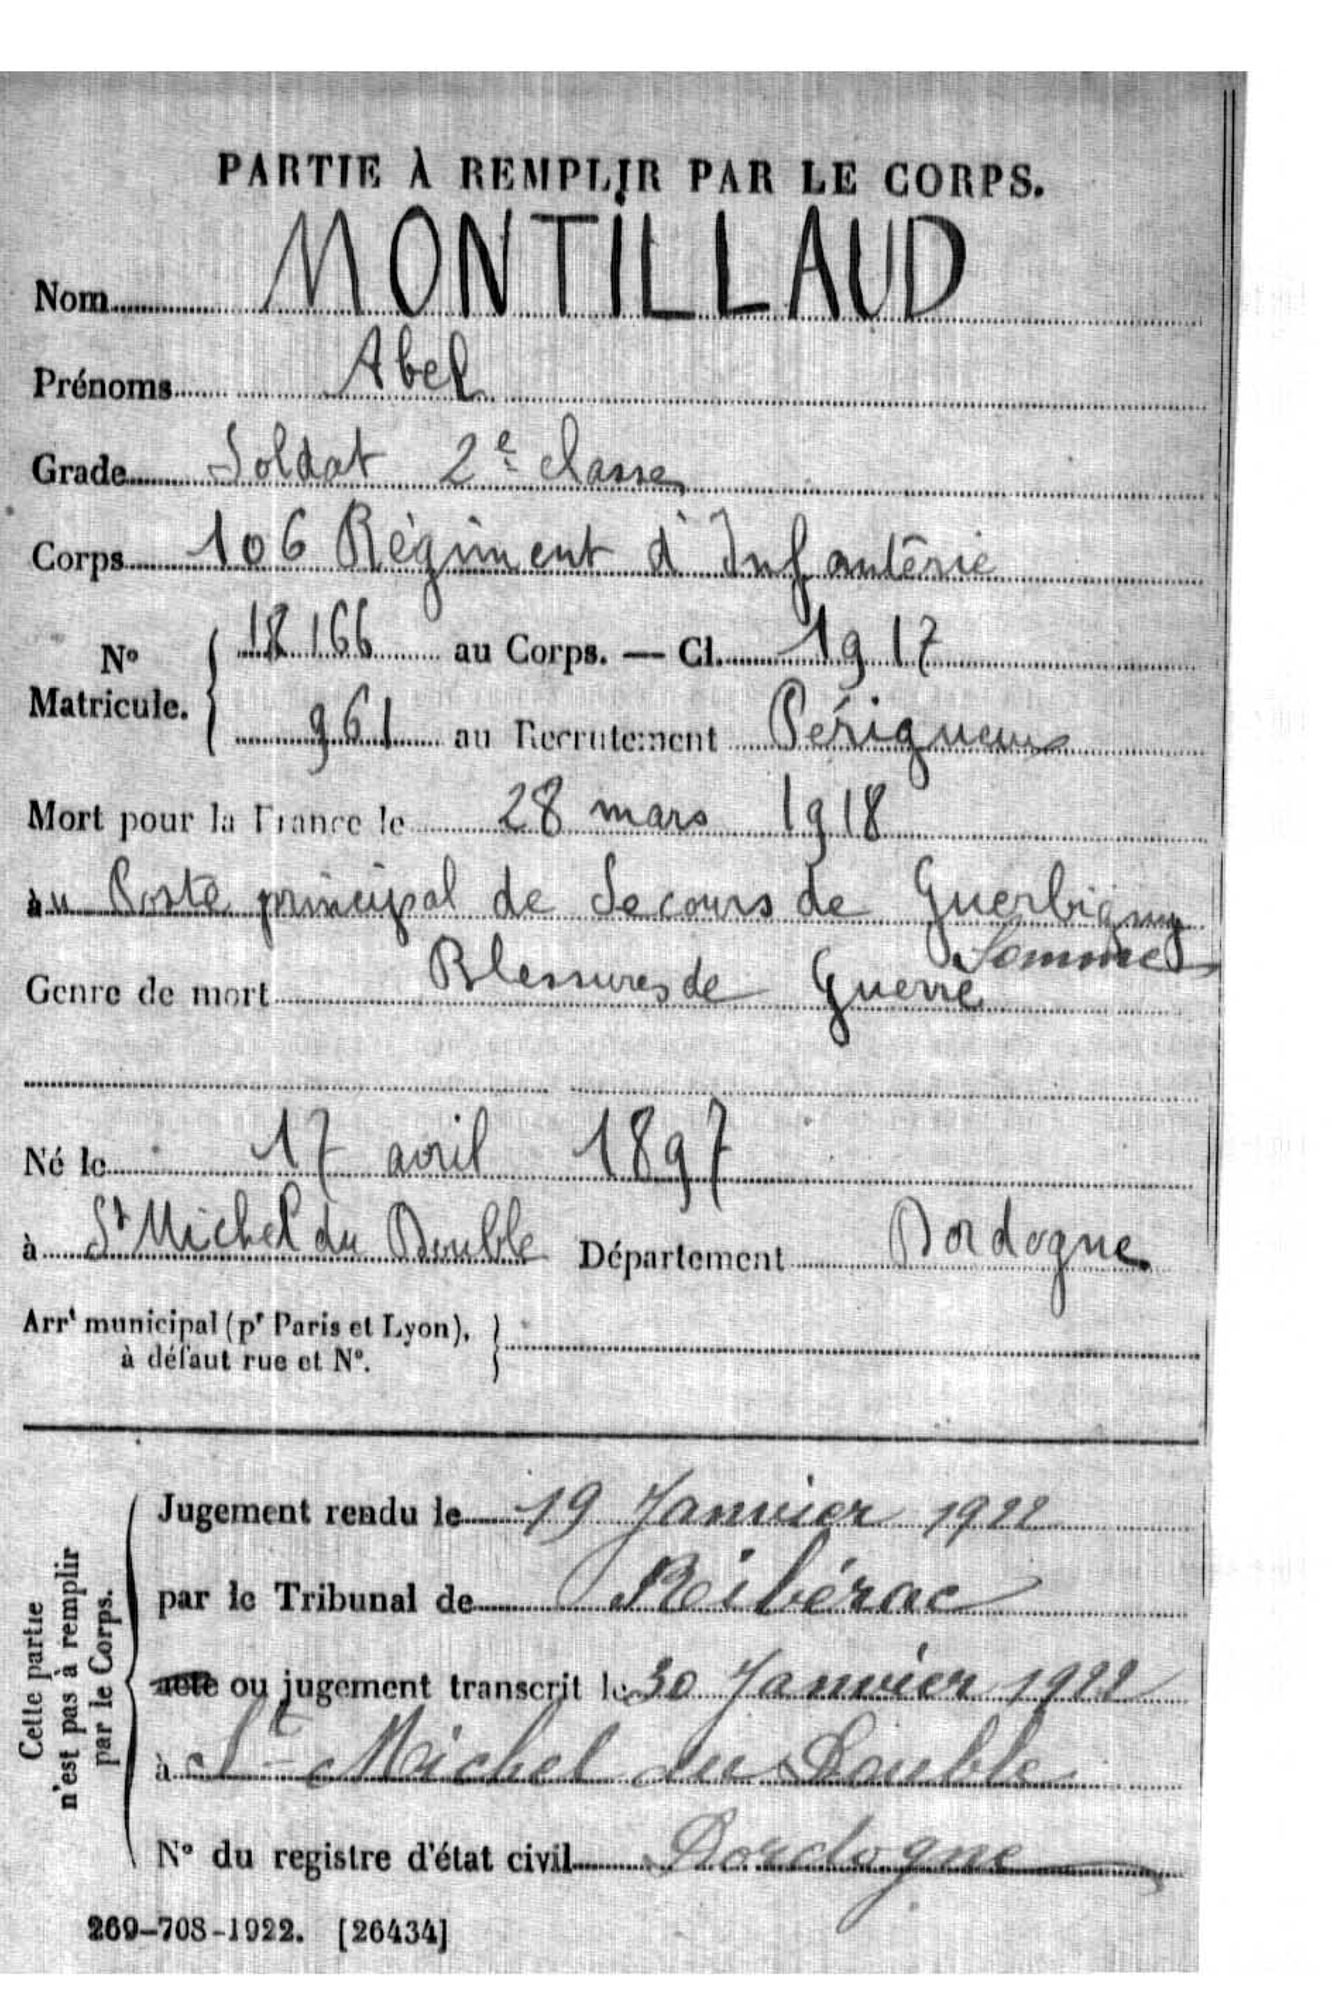 PARTIE À REMPLIR PAR LE CORPS.
Nom MONTILLAUD
Prénoms Abel
Grade Soldat 2e classe
Corps 106 Régiment d'Infanterie
No Matricule. { 18166 au Corps. — Cl. 1917
961 au Recrutement Périgueux
Mort pour la France le 28 mars 1918
au Poste principal de Secours de Guerbigny
Somme
Genre de mort Blessures de Guerre
Né le 17 avril 1897
à St Michel du Double Département Dordogne
Arrt municipal (pr Paris et Lyon), }
à défaut rue et No.
Cette partie
n'est pas à remplir
par le Corps.
Jugement rendu le 19 Janvier 1922
par le Tribunal de Ribérac
acte ou jugement transcrit le 30 Janvier 1922
à St Michel du Double
No du registre d'état civil Dordogne
269-708-1922. [26434]